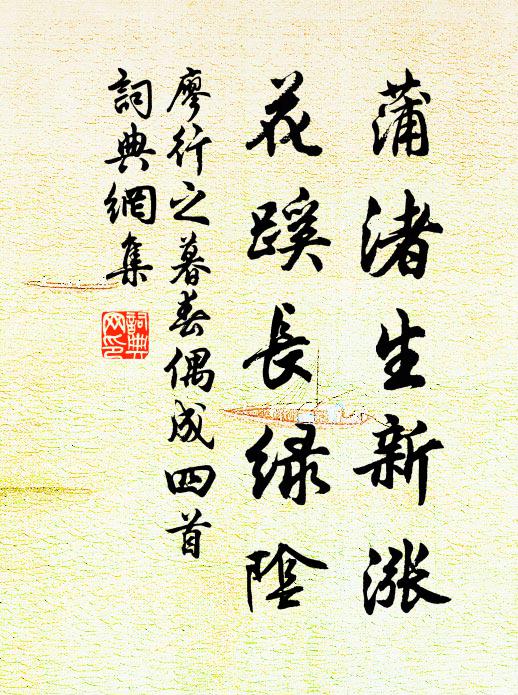 蒲渚生新漲
花蹊長緑陰
廖行之暮春偶成四首
詞典網集
詞典
网印